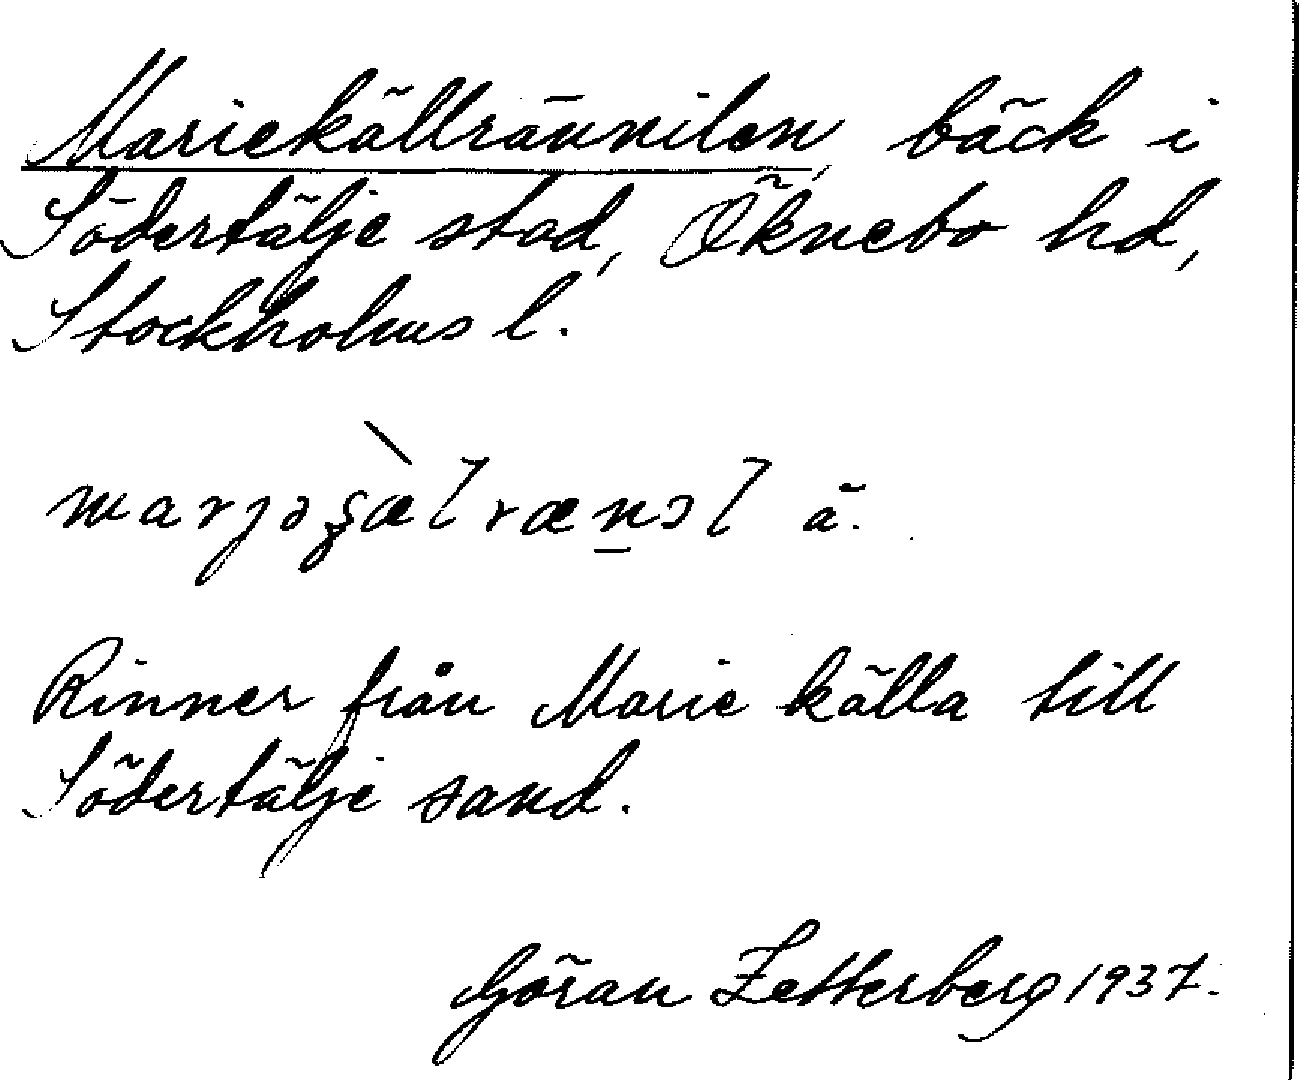 Mariekällrännilen, bäck i
Södertälje stad, Öknebo hd,
Stockholms l.
ä.
Rinner från Marie källa till
Södertälje sand.
Göran Zetterberg 1937.